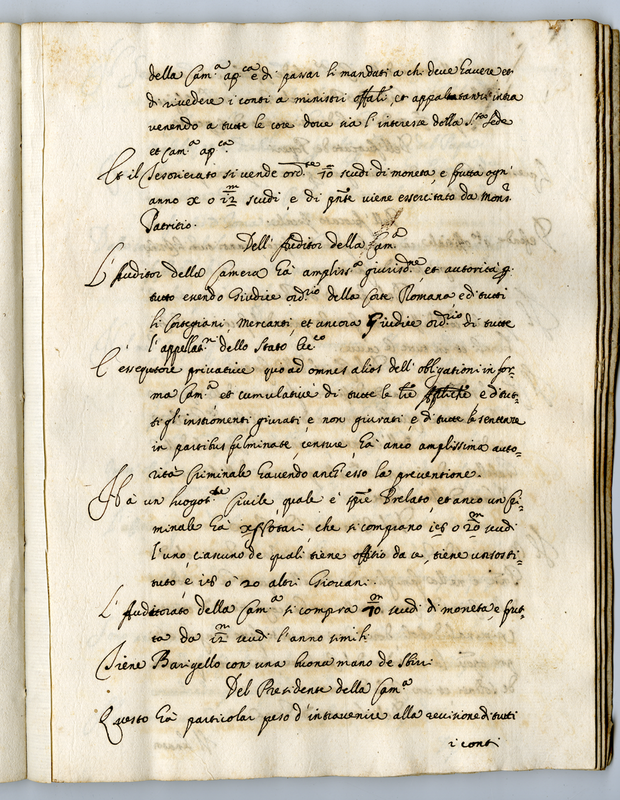 della Cam.ª ap.ca e di passar li mandati a chi deve havere et
di rivedere i conti a ministri offali, et appaltatanti intra
venendo a tutte le cose dove sia l'interesse della S.ta Sede
et Cam.ª ap.ca
Et il Tesorierato si vende ord.te 70 scudi di moneta, e frutta ogni
anno x o 12 m scudi, e di pnte viene essercitato da mons.r
Patritio.
Dell' Auditor della Cam.ª
L'Auditor della Camera hà ampliss.ª giurisd.ne, et autorità
tutto essendo Giudice ord.rio della Corte Romana e di tutti
li Cortegiani, Mercanti, et ancora Giudice ord.rio di tutte
l'appellat.ni dello Stato Ecc.co
L'essequtore privative quo ad omnes alios dell' obligationi in for-
ma Cam.ª et cumulative di tutte le lre e di tut-
ti gl'instromenti giurati e non giurati e di tutte le sentenze
in partibus fulminate, censure, hà anco amplissima auto-
rità Criminale havendo anch'esso la preventione.
Hà un luogot.te Civile, quale è spre Prelato, et anco un Cri-
minale hà Nottari, che si comprano 18 o 20 m scudi
l'uno, ciascuno de quali tiene offitio da se, tiene un sosti-
tuto, e 18 ò 20 altri Giovani.
L'Auditorato della Cam.ª si compra 70 m scudi di moneta, e frut-
ta da 12 m scudi l'anno simili
Tiene Barigello con una buona mano de Sbirri
Del Presidente della Cam.ª
Questo hà particolar peso d'intravenire alla revisione di tutti
i conti